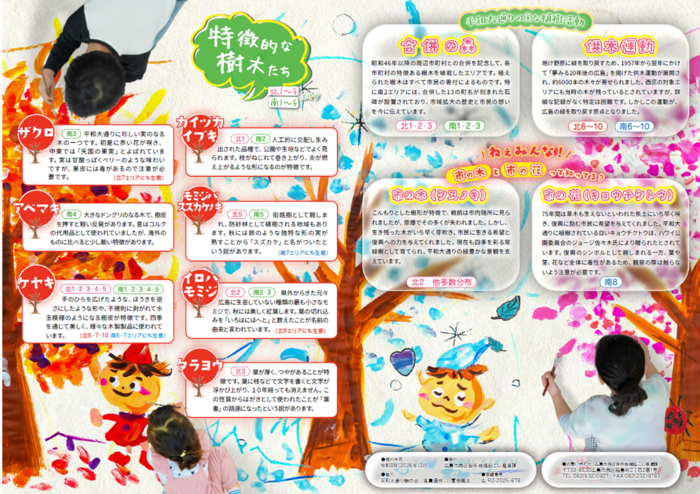 特徴的な
樹木たち
北1～5
南1～5
ザクロ
南3 平和大通りに珍しい実のなる
木の一つです。初夏に赤い花が咲き、
中東では「天国の果実」とよばれていま
す。実は甘酸っぱくベリーのような味わい
ですが、果皮には毒があるので注意が必
要です。
(北7エリアにも生息)
アベマキ
南4 大きなドングリのなる木で、樹皮
を押すと軽い反発があります。昔はコルク
の代用品として使われていましたが、海外
のものに比べると少し脆い特徴があります。
ケヤキ
北1・2・3・4・5 南1・2・3・4・5
手のひらを広げたような、ほうきを逆
さにしたような形や、不規則に剥がれて水
玉模様のようになる樹皮が特徴です。四季
を通じて美しく、様々な木製製品に使われて
います。
(北6・7・10 南6・7エリアにも生息)
カイヅカ
イブキ
北1 南2 人工的に交配し生み
出された品種で、公園や生垣などでよく見
られます。枝がねじれて巻き上がり、炎が燃
え上がるような形になるのが特徴です。
モミジバ
スズカケノキ
北5 南5 街路樹として親しま
れ、防砂林として植栽される地域もあり
ます。秋には鈴のような独特な形の実が
熟すことから「スズカケ」と名がついたと
いう説があります。
(南7エリアにも生息)
イロハ
モミジ
北2 南2・3 県外からきた元々
広島に生息していない種類の最も小さなモ
ミジで、秋には美しく紅葉します。葉の切れ込
みを「いろはにほへと」と数えたことが名前の
由来と言われています。
(北8エリアにも生息)
タラヨウ
北3 葉が厚く、つやがあることが特
徴です。葉に枝などで文字を書くと文字が
浮かび上がり、10年経っても消えません。こ
の性質からはがきとして使われたことが「葉
書」の語源になったという説があります。
合併の森
昭和46年以降の周辺市町村との合併を記念して、各
市町村の特徴ある樹木を植栽したエリアです。植え
られた樹木はすべて市民の寄付によるものです。特
に南2エリアには、合併した13の町名が刻まれた石
碑が設置されており、市域拡大の歴史と市民の想い
を今に伝えています。
北1・2・3 南1・2・3
供木運動
焼け野原に緑を取り戻すため、1957年から翌年にかけ
て「夢みる20年後の広島」を掲げた供木運動が展開さ
れ、約6000本の木々が寄せられました。西区の対象エ
リアにも当時の木が残っているとされていますが、詳
細な記録がなく特定は困難です。しかしこの運動が、広
島の緑を取り戻す原点となりました。
北6～10 南6～10
ねぇみんな!!
市の木と市の花って知ってる?
市の木(クスノキ)
こんもりとした樹形が特徴で、戦前は市内随所に見ら
れましたが、原爆でその多くが失われました。しかし、
生き残った木がいち早く芽吹き、市民に生きる希望と
復興への力を与えてくれました。現在も四季を彩る常
緑樹として育てられ、平和大通りの緑豊かな景観を支
えています。
北2 他多数分布
市の花(キョウチクトウ)
75年間は草木も生えないといわれた焦土にいち早く咲
き、復興に励む市民に希望を与えてくれました。平和大
通りに植樹されている白いキョウチクトウは、ハワイ公
園委員会のジョージ佐々木氏により贈られたとされて
います。復興のシンボルとして親しまれる一方、葉や
茎、花など全体に毒性があるため、観察の際は触らな
いよう注意が必要です。
南8